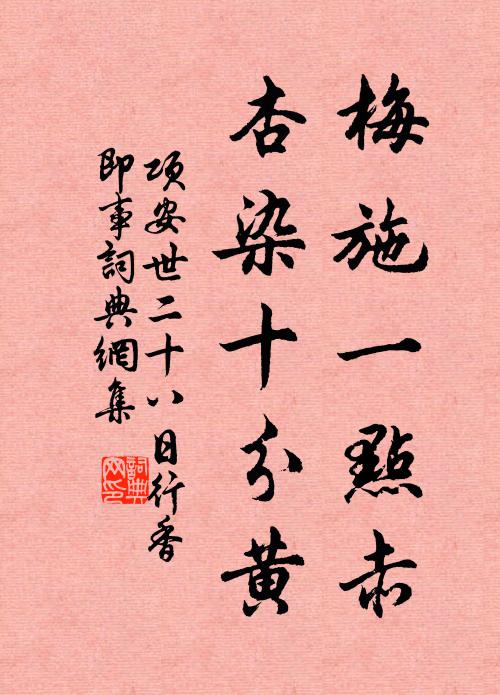 梅施一點赤
杏染十分黃
項安世二十八日行香
即事詞典網集
詞典
网印